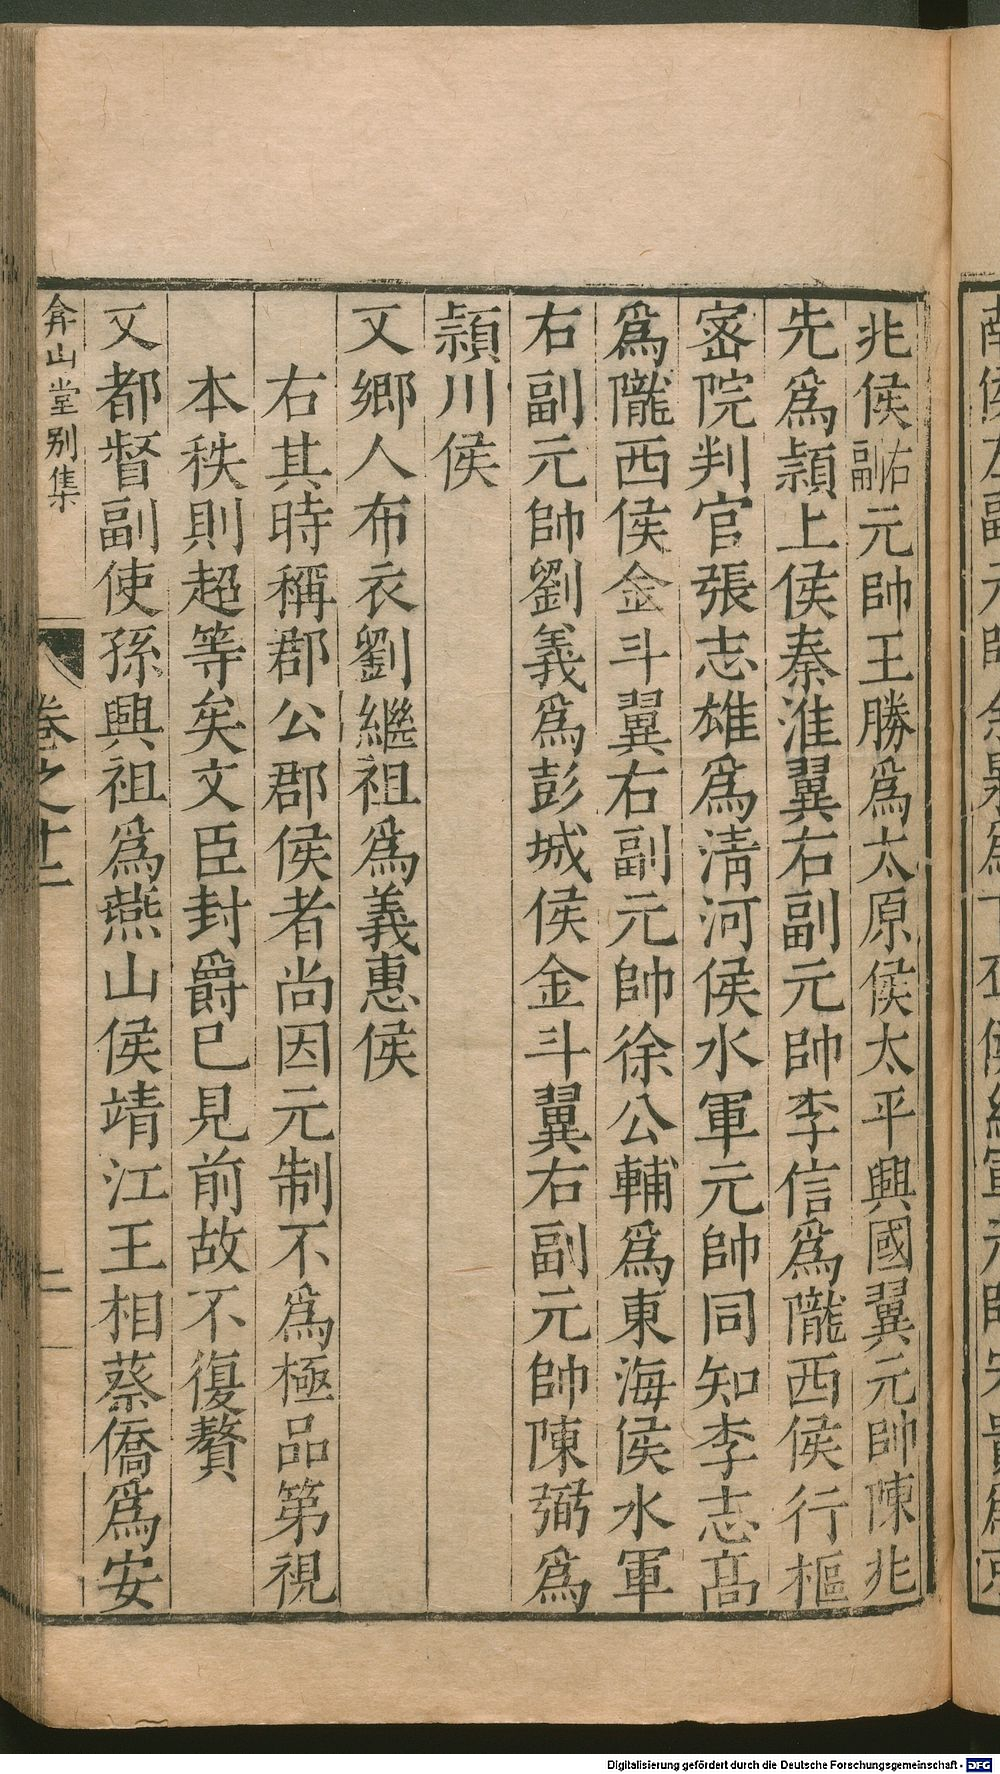 兆侯右副元帥王勝爲太原侯太平興國翼元帥陳兆
先爲頴上侯秦淮翼右副元帥李信爲隴西侯行樞
宻院判官張志雄爲清河侯水軍元帥同知李志高
爲隴西侯金斗翼右副元帥徐公輔爲東海侯水軍
右副元帥劉義爲彭城侯金斗翼右副元帥陳弼爲
頴川侯
又鄉人布衣劉繼祖爲義惠侯
右其時稱郡公郡侯者尚因元制不爲極品第視
本秩則超等矣文臣封爵已見前故不復贅
又都督副使孫興祖爲燕山侯靖江王相蔡僑爲安
弇山堂别集
卷之十二
二
Digitalisierung gefördert durch die Deutsche Forschungsgemeinschaft - DFG